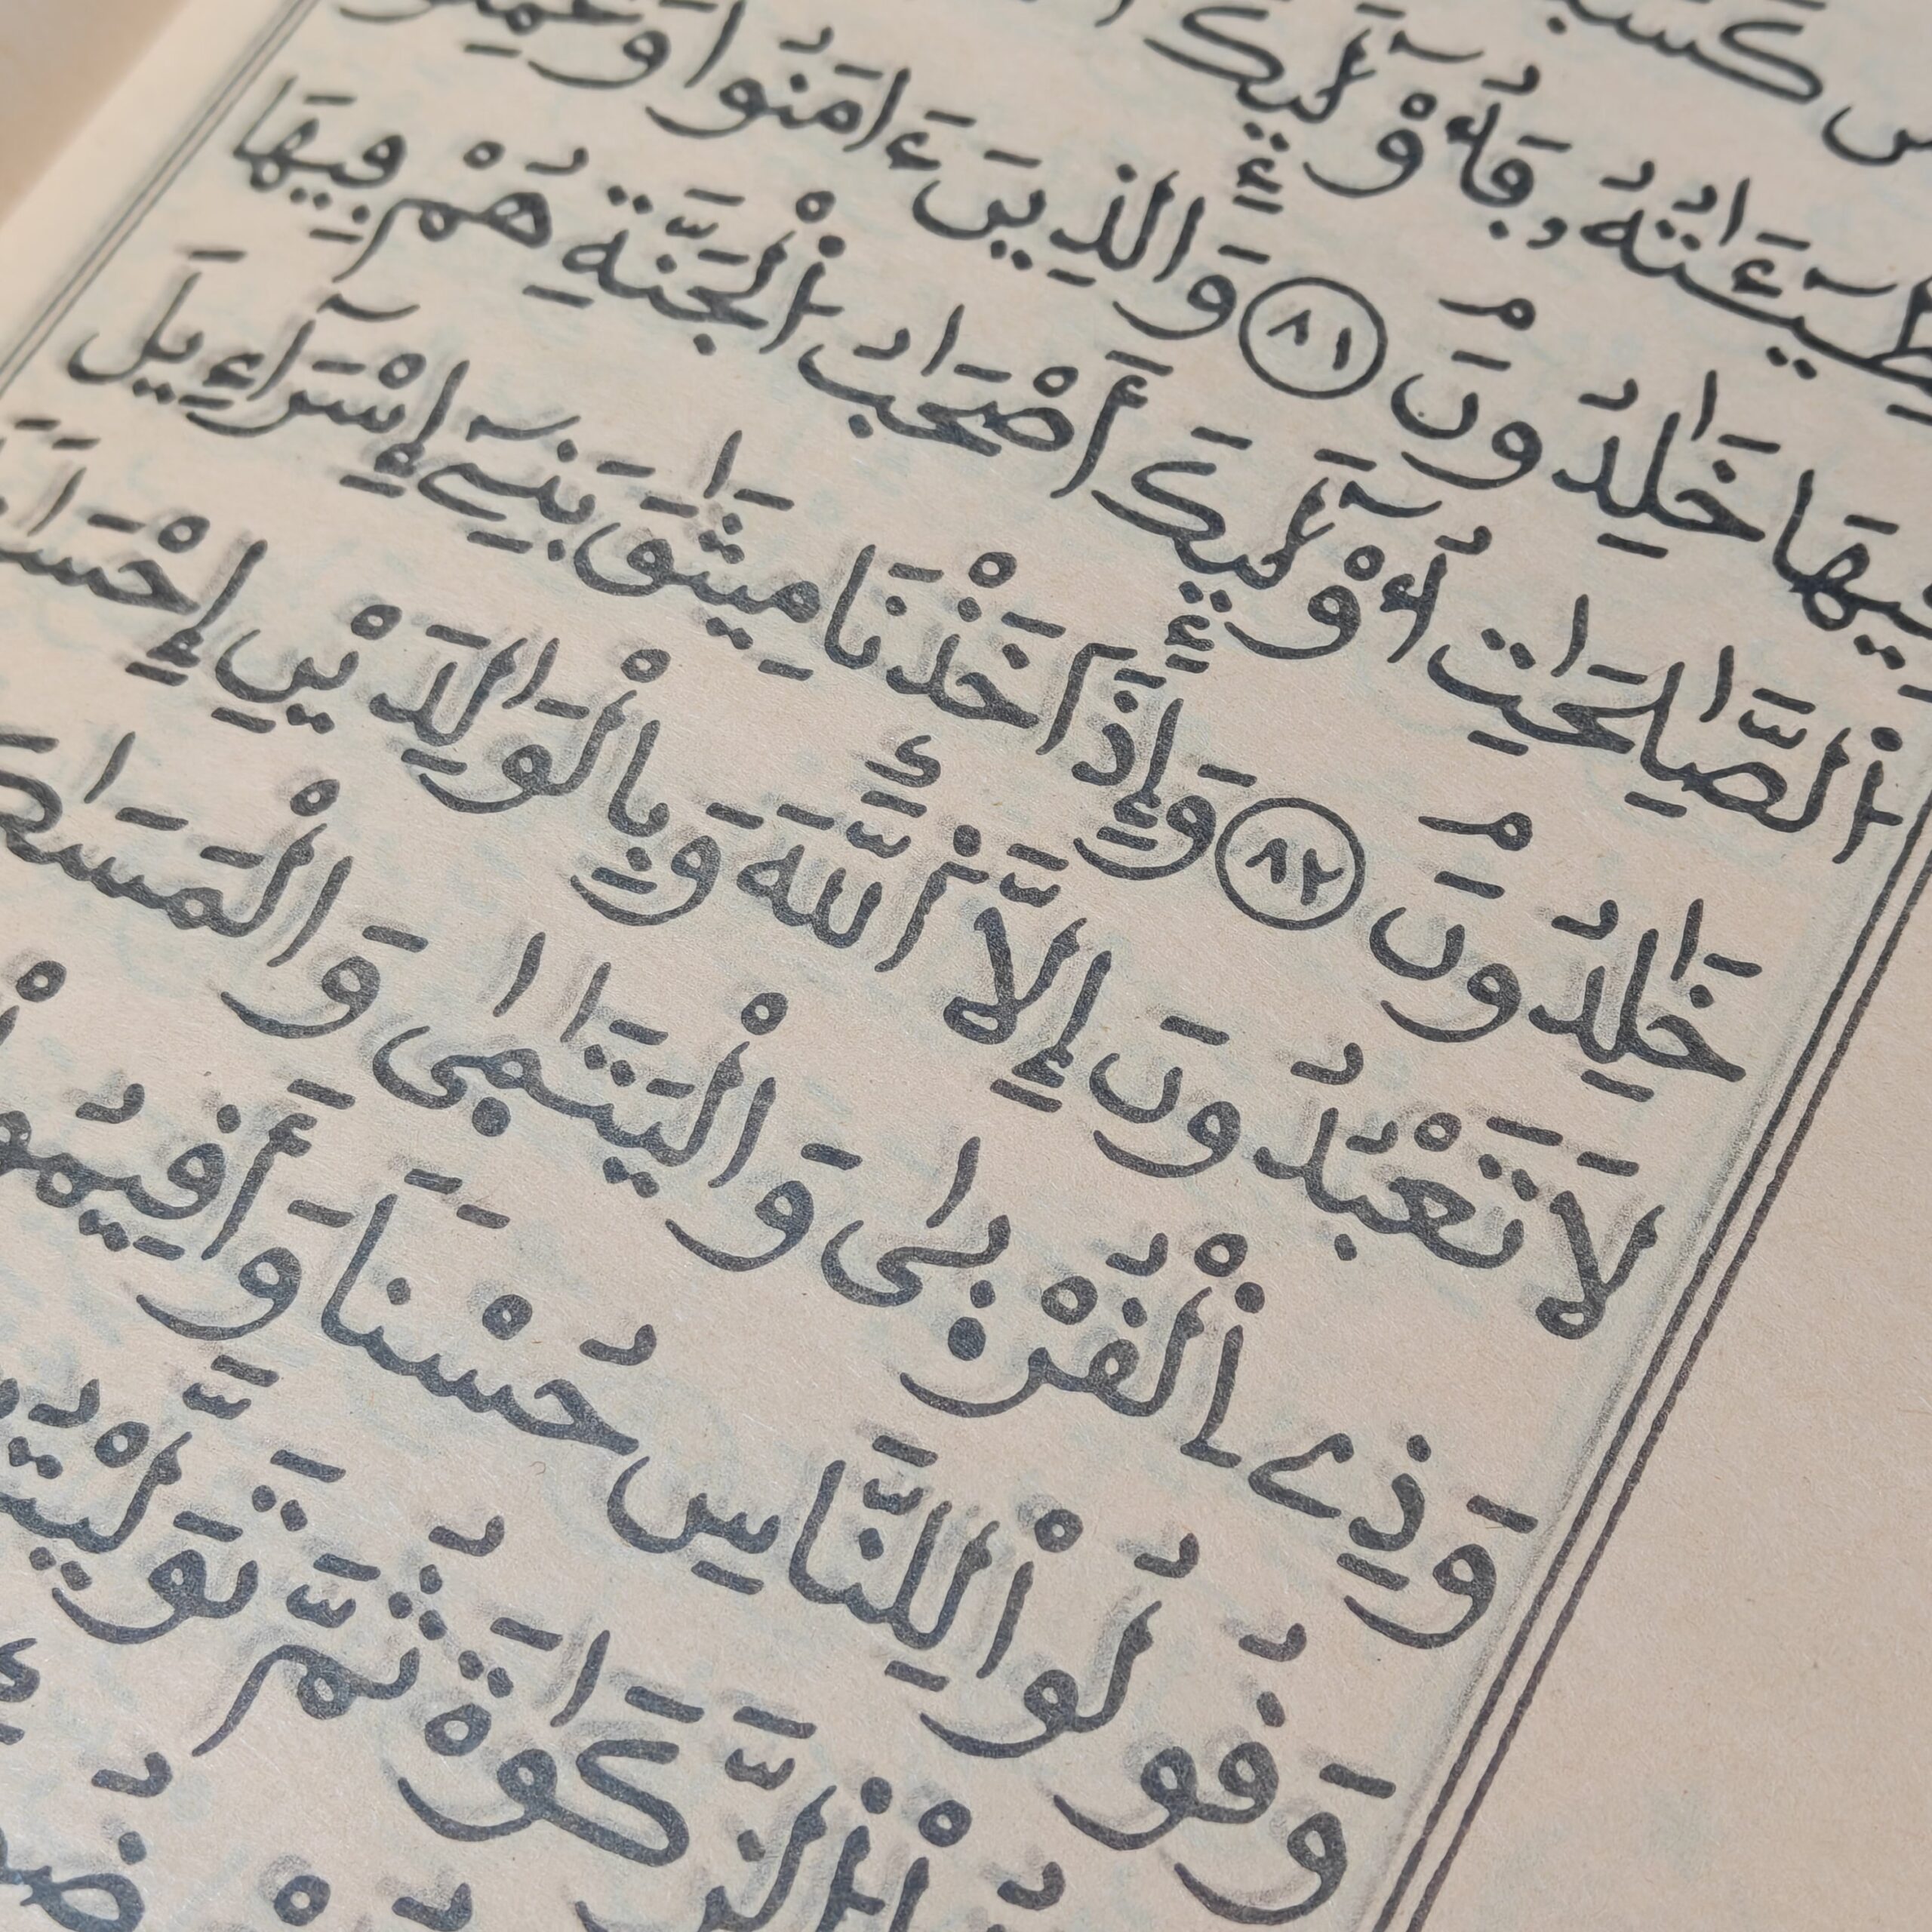 كَسَبَ
خَطِيٓـَٔـٰتُهُۥ فَأُوْلَـٰٓئِكَ
فِيهَا خَـٰلِدُونَ ٨١ وَالذِينَ ءَامَنُوا وَعَمِلُوا
اُ۬لصَّـٰلِحَـٰتِ أُوْلَـٰٓئِكَ أَصْحَـٰبُ اُ۬لْجَنَّةِ هُمْ فِيهَا
خَـٰلِدُونَ ٨٢ وَإِذَ اَخَذْنَا مِيثَـٰقَ بَنِےٓ إِسْرَآءِيلَ
لَا تَعْبُدُونَ إِلَّا اَ۬للَّهَ وَبِالْوَٰلِدَيْنِ إِحْسَا
وَذِے اِ۬لْقُرْبۭىٰ وَالْيَتَـٰمۭىٰ وَالْمَسَـٰكِ
وَقُولُواْ لِلنَّاسِ حُسْناً وَأَقِيمُو
اُ۬لزَّكَوٰةَ ثُمَّ تَوَلَّيْتُ